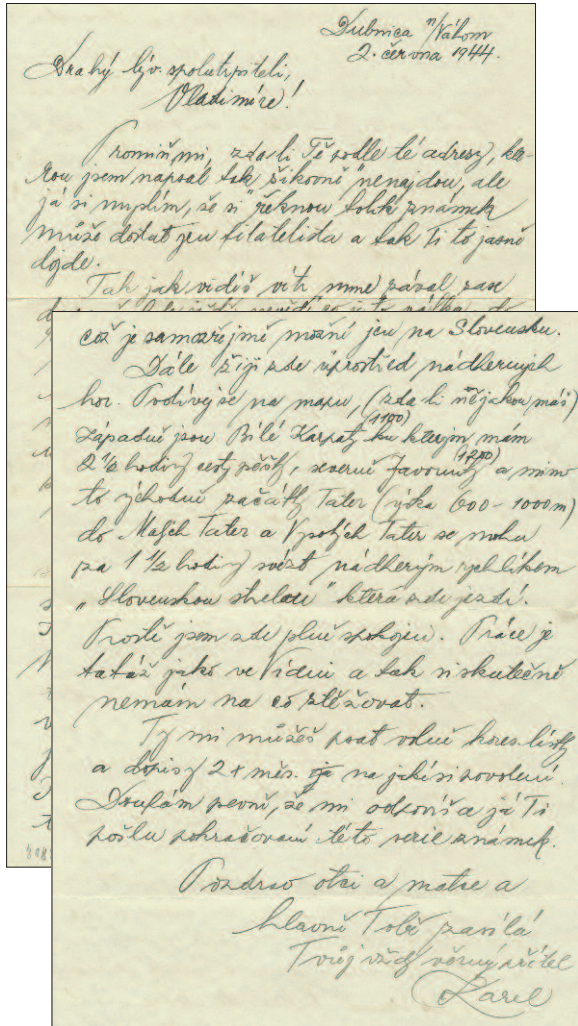 Dubnica n/Váhom
2. června 1944.
Drahý býv. spolutrpiteli,
Vladimíre!
Promiň mi, zda-li Tě podle té adresy, kte-
rou jsem napsal tak "šikovně" nenajdou, ale
já si myslím, že si řeknou tolik známek
může dostat jen filatelista a tak Ti to jasně
dojde.
Tak jak vidíš vítr mne zavál zase
což je samozřejmě možné jen na Slovensku.
Dále žiji zde uprostřed nádherných
hor. Podívej se na mapu, (zda-li nějakou máš)
(1100)
západně jsou Bílé Karpaty ku kterým mám
(1200)
2 1/2 hodiny cesty pěšky, severně Javorníky a mimo
to východně začátky Tater (výška 600 - 1000 m)
do Malých Tater a Vysokých Tater se mohu
za 1 1/2 hodiny svézt nádherným rychlíkem
"Slovenskou strelou" která zde jezdí.
Prostě jsem zde plně spokojen. Práce je
tatáž jako ve Vídni a tak si skutečně
nemám na co stěžovat.
Ty mi můžeš psát volně kores. lístky
a dopisy 2 + měs. na jakési povolení.
Doufám pevně, že mi odpovíš a já Ti
pošlu pokračování této serie známek.
Pozdrav otci a matce a
hlavně Tobě zasílá
Tvůj vždy věrný přítel
Karel